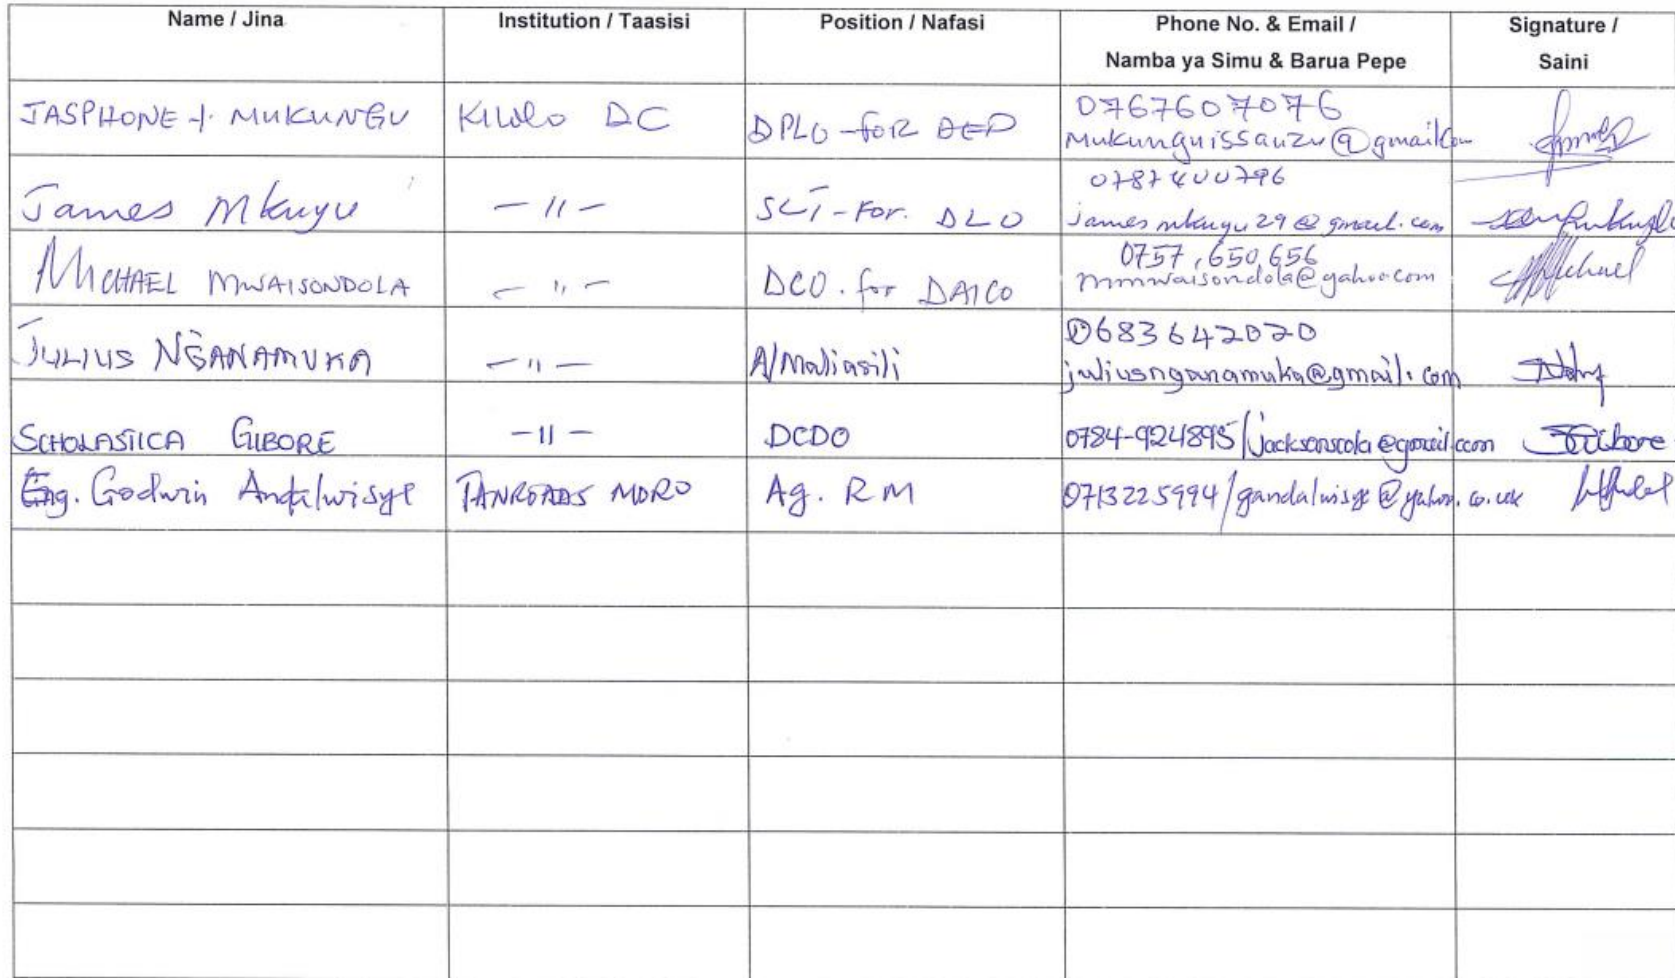 Name / Jina Institution / Taasisi Position / Nafasi Phone No. & Email / Signature /
Namba ya Simu & Barua Pepe Saini
JASPHONE J. MUKUNGU Kilolo DC DPLO - for DED 0767607076
mukunguissauzu@gmail.com
James Mkuyu - 11 - SLT - For. DLO 0787400796
james mkuyu 29 @ gmail.com
MICHAEL MWAISONDOLA - 11 - DCO. for DAICO 0757,650,656
mmwaisondola@yahoo.com
JULIUS NG'ANAMUKA - 11 - A/Maliasili 0683642020
juliusnganamuka@gmail.com
SCHOLASTICA GIBORE - 11 - DCDO 0784-924895/jacksonscola@gmail.com
Eng. Godwin Andalwisye TANROADS MORO Ag. RM 0713225994/gandalwisye@yahoo.co.uk